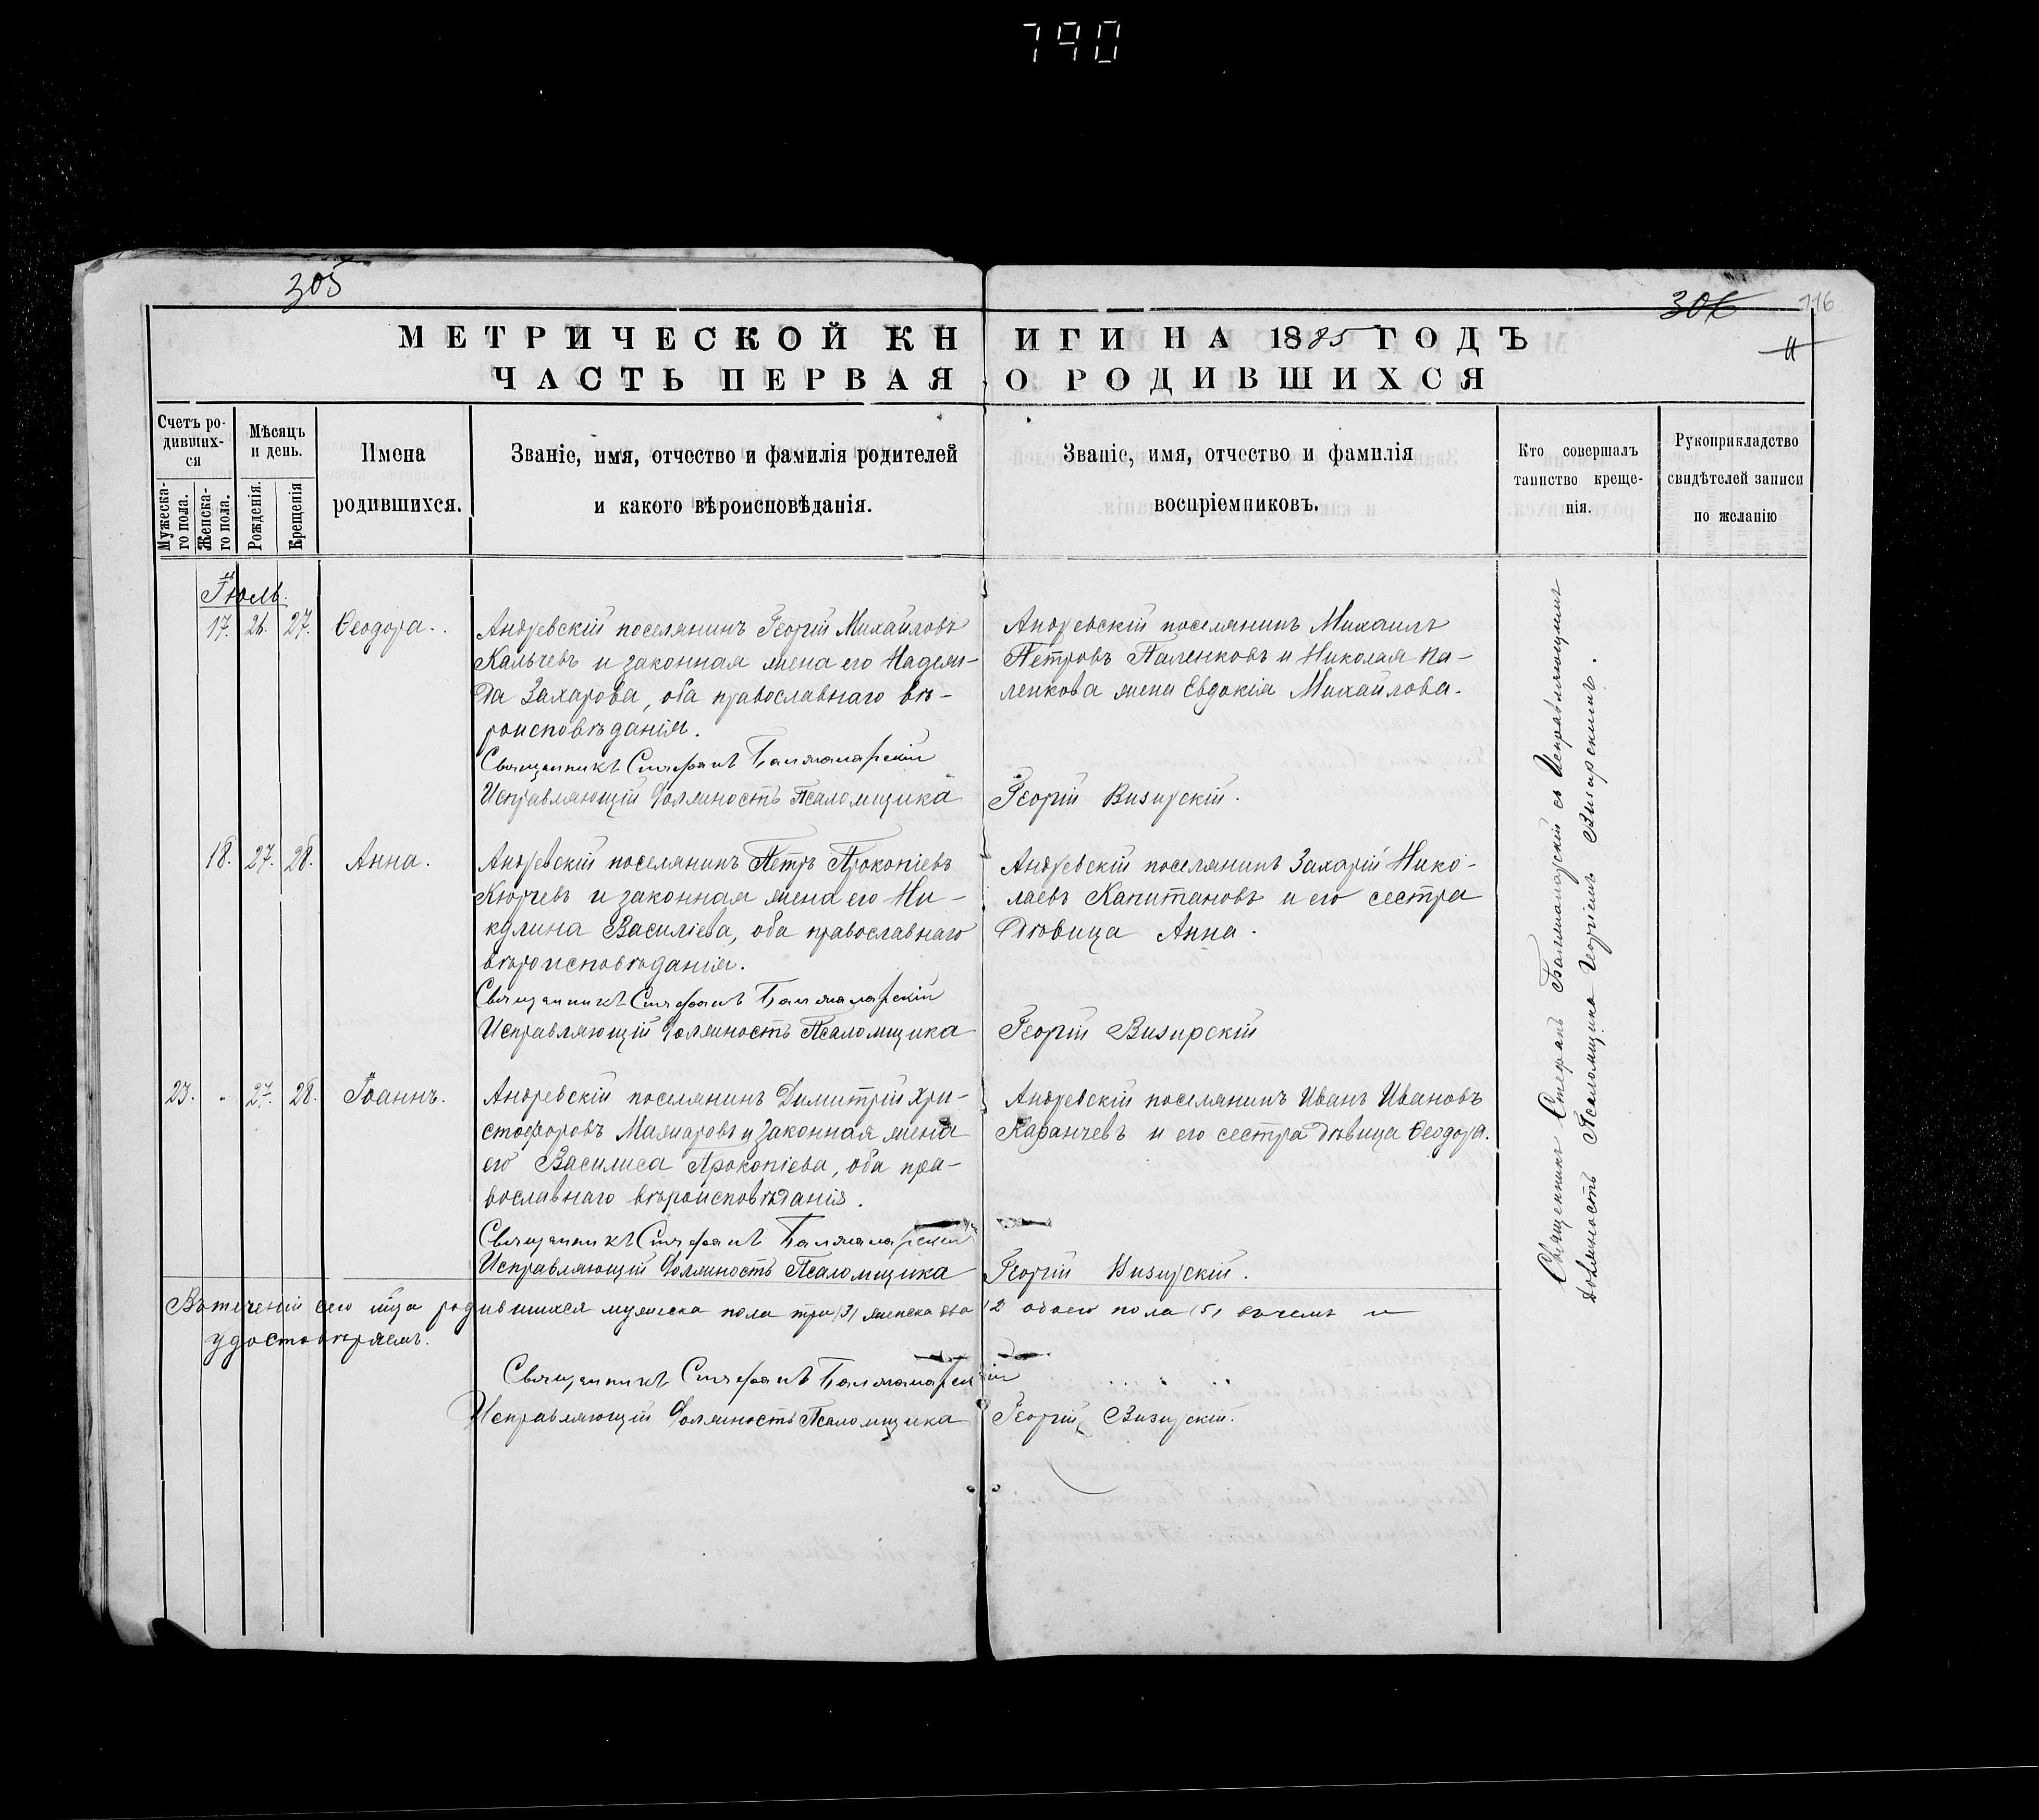 790
305
306
116
МЕТРИЧЕСКОЙ КНИГИ НА 1885 ГОДЪ
11
ЧАСТЬ ПЕРВАЯ, О РОДИВШИХСЯ
Счетъ родившихся
Мужескаго пола.
Женскаго пола.
Мѣсяцъ и день.
Рожденія.
Крещенія
Имена родившихся.
Званіе, имя, отчество и фамилія родителей
и какого вѣроисповѣданія.
Званіе, имя, отчество и фамилія
воспріемниковъ.
Кто совершалъ
таинство креще-
нія.
Рукоприкладство
свидѣтелей записи
по желанію
Іюль.
17. 26. 27. Ѳеодора.
Андреевскій поселянинъ Георгій Михайловъ
Кальчевъ и законная жена его Надеж-
да Захарова, оба православнаго вѣ-
роисповѣданія.
Священникъ Стефанъ Балжаларскій
Исправляющій Должность Псаломщика
Андреевскій поселянинъ Михаилъ
Петровъ Паленковъ и Николая Па-
ленкова жена Евдокія Михайлова.
Георгій Визирскій.
18. 27. 28. Анна.
Андреевскій поселянинъ Петръ Прокопіевъ
Кюрчевъ и законная жена его Ни-
кулина Василіева, оба православнаго
вѣроисповѣданія.
Священникъ Стефанъ Балжаларскій
Исправляющій Должность Псаломщика
Андреевскій поселянинъ Захарій Нико-
лаевъ Капитановъ и его сестра
Дѣвица Анна.
Георгій Визирскій
23. - 27. 28. Іоаннъ.
Андреевскій поселянинъ Димитрій Хри-
стофоровъ Мажаровъ и законная жена
его Василиса Прокопіева, оба пра-
вославнаго вѣроисповѣданія.
Священникъ Стефанъ Балжаларскій
Исправляющій Должность Псаломщика
Андреевскій поселянинъ Иванъ Ивановъ
Каранчевъ и его сестра дѣвица Ѳеодора.
Георгій Визирскій.
Въ теченіи сего м-ца родившихся мужеска пола три (3) женска два (2 обоего пола (5) въ чемъ и
удостовѣряемъ.
Священникъ Стефанъ Балжаларскій
Исправляющій Должность Псаломщика Георгій Визирскій.
Священникъ Стефанъ Балжаларскій съ Исправляющимъ
Должность Псаломщика Георгіемъ Визирскимъ.